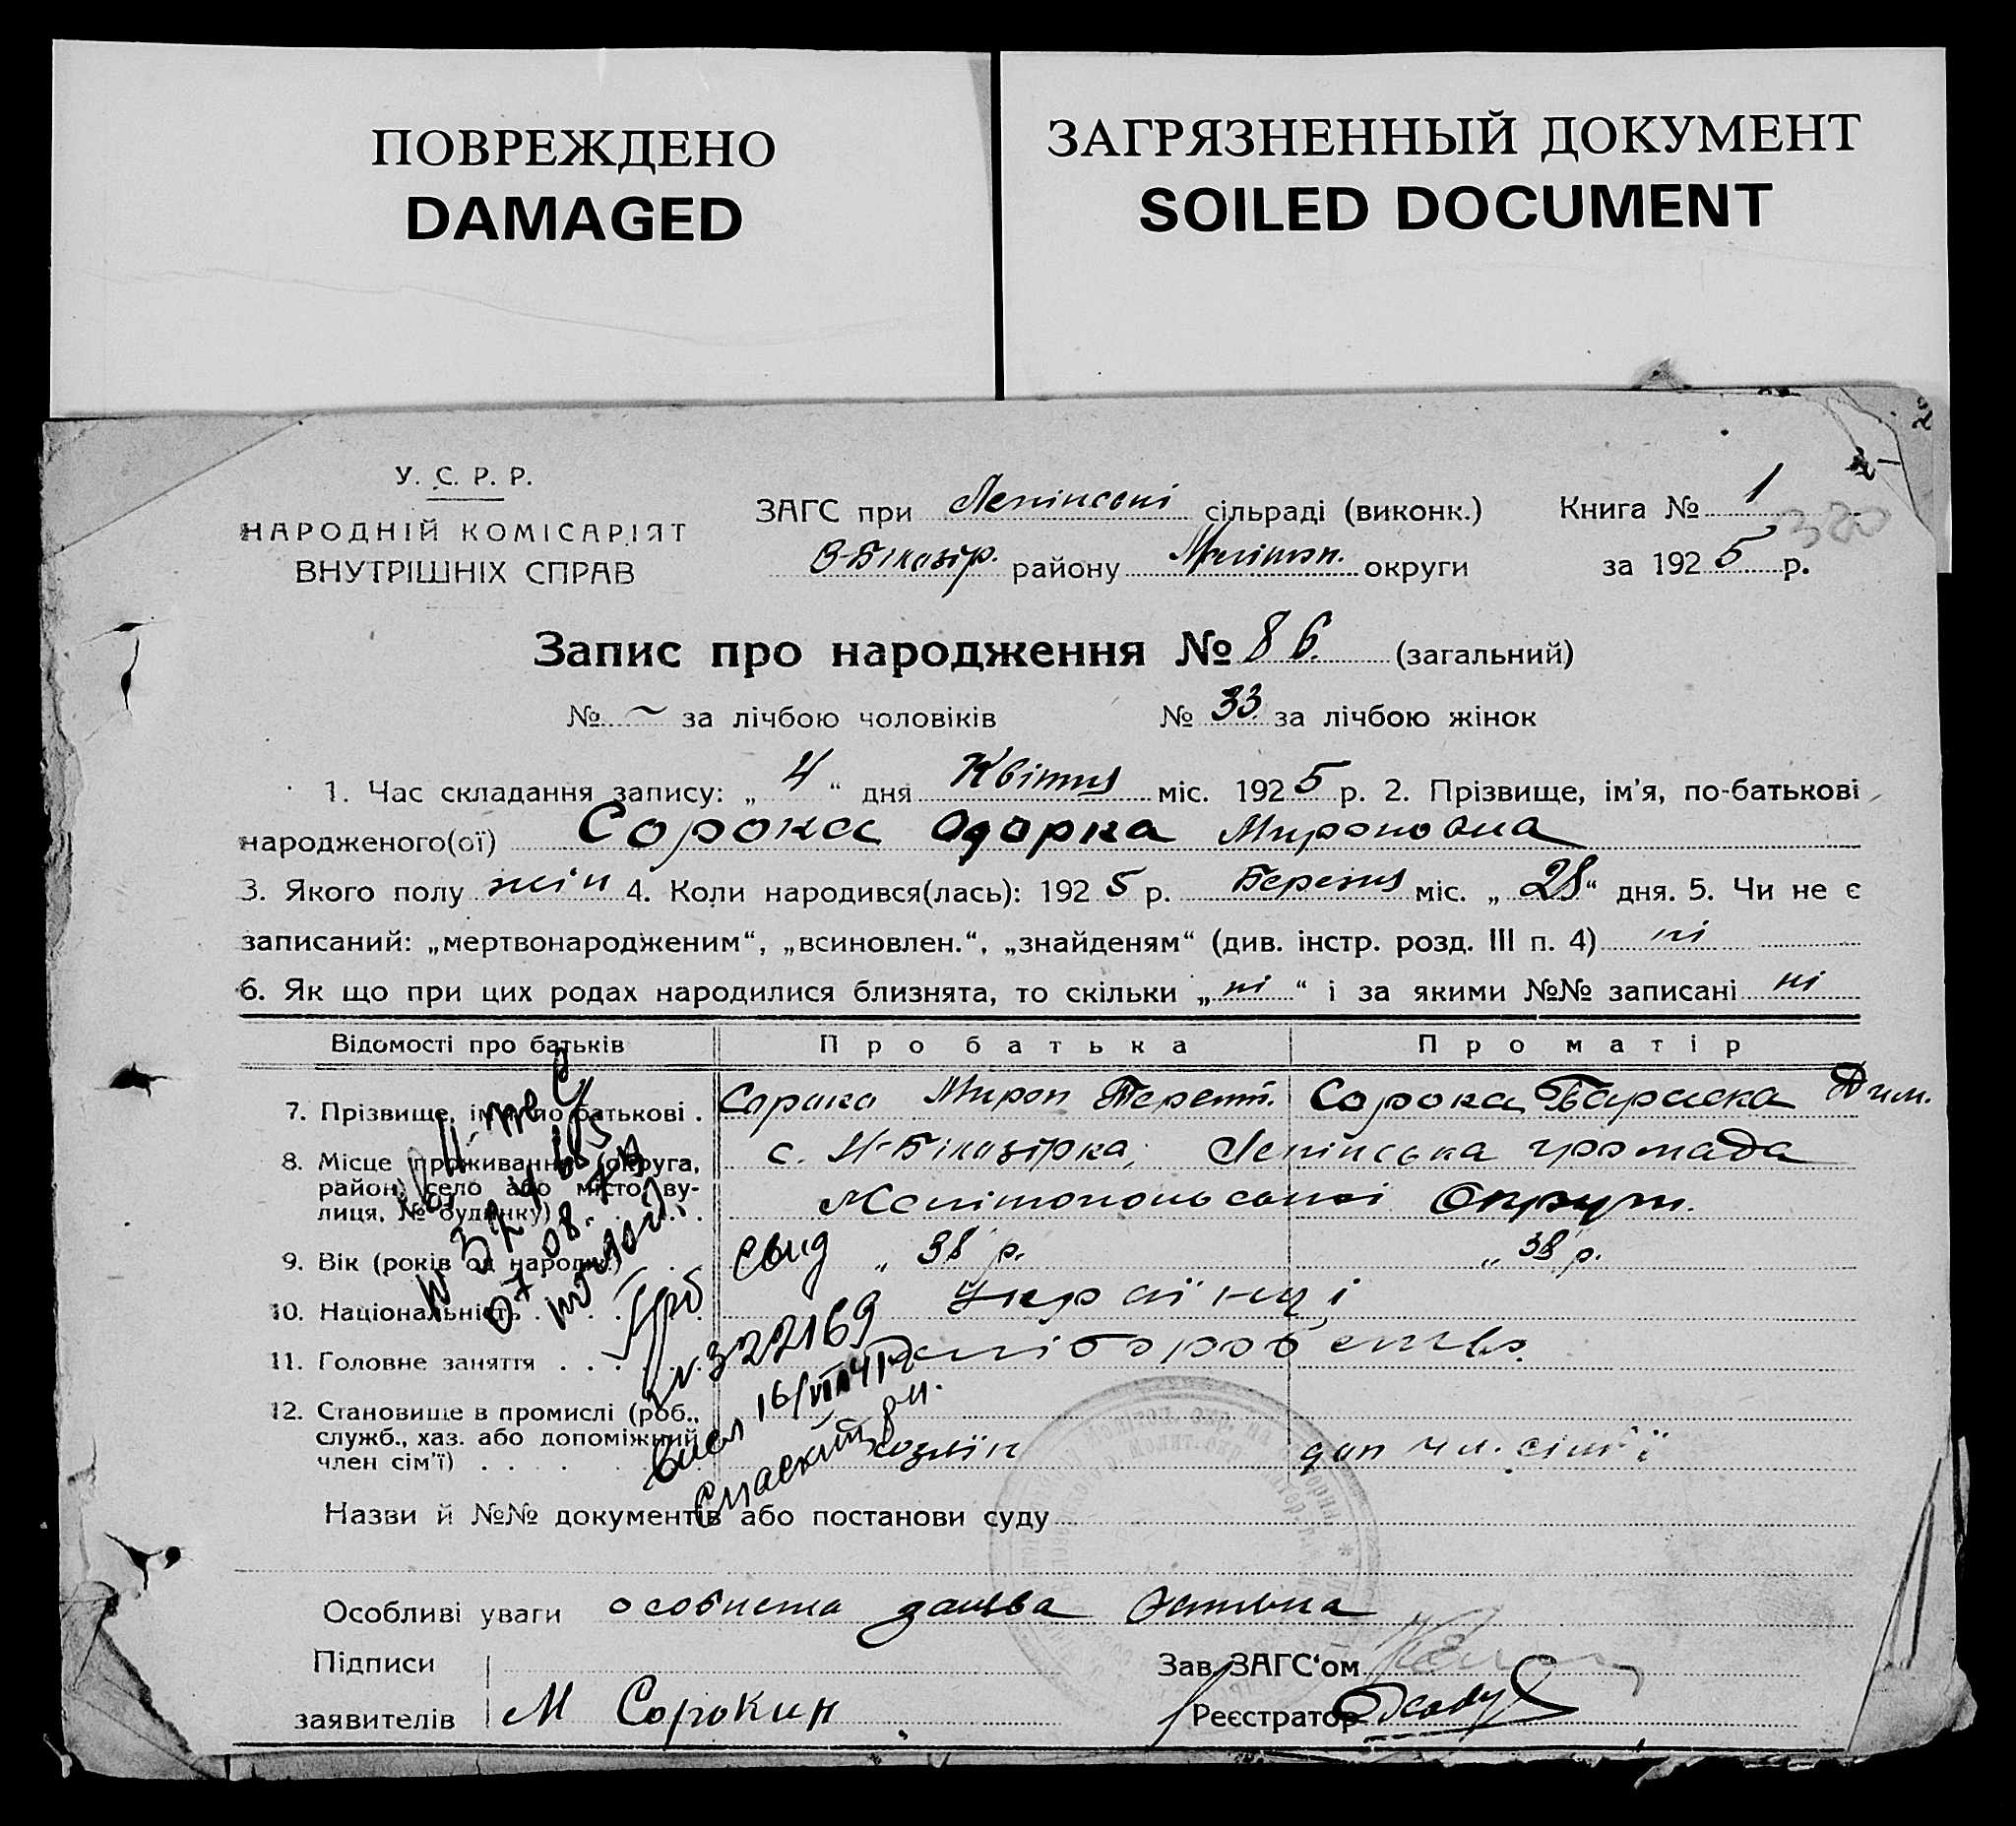 ПОВРЕЖДЕНО
DAMAGED
ЗАГРЯЗНЕННЫЙ ДОКУМЕНТ
SOILED DOCUMENT
У. С. Р. Р.
НАРОДНІЙ КОМІСАРІЯТ
ВНУТРІШНІХ СПРАВ
ЗАГС при Ленінській сільраді (виконк.)
В-Білозір. району Мелітоп. округи
Книга № 1
380
за 1925 р.
Запис про народження № 86. (загальний)
№ ~ за лічбою чоловіків № 33 за лічбою жінок
1. Час складання запису: „ 4 “ дня Квітня міс. 1925 р. 2. Прізвище, ім'я, по-батькові
народженого(ої) Сорока Одарка Мироновна
3. Якого полу жін 4. Коли народився(лась): 1925 р. Березня міс. „ 28 “ дня. 5. Чи не є
записаний: „мертвонародженим“, „всиновлен.“, „знайденям“ (див. інстр. розд. III п. 4) ні
6. Як що при цих родах народилися близнята, то скільки „ ні “ і за якими №№ записані ні
Відомості про батьків Про батька Про матір
7. Прізвище, ім'я, по батькові . Сорока Мирон Терент. Сорока Параска Дим.
8. Місце проживання (округа, район, село або місто, вулиця, № будинку) с. Н-Білозірка, Ленінська громада
Мелітопольської Округи.
9. Вік (років од народж.) „ 38 р. „ 38 р.
10. Національність Українці
11. Головне заняття хліборобство.
12. Становище в промислі (роб.,
служб., хаз. або допоміжний
член сім'ї) хозяїн доп чл. сім'ї
№ 322169
Назви й №№ документів або постанови суду
Особливі уваги особиста заява батька
Підписи
заявителів М Сорокин
Зав. ЗАГС‘ом
Реєстратор